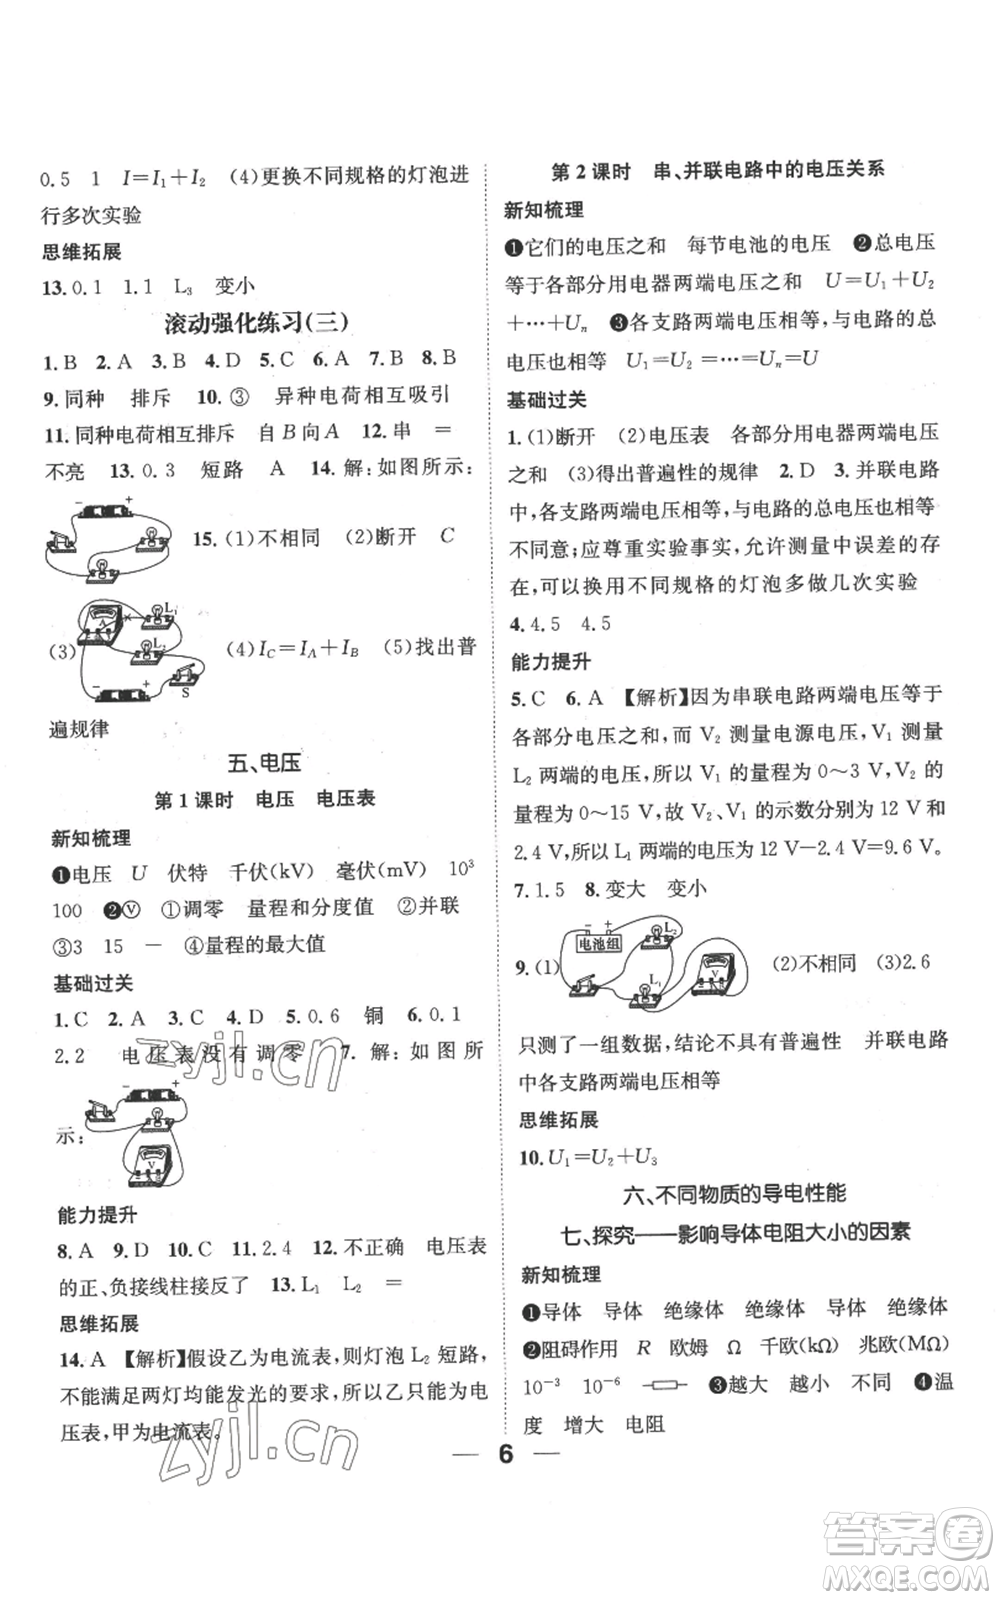 0.5 1 I=I₁+I₂ (4)更换不同规格的灯泡进
行多次实验
思维拓展
13. 0.1 1.1 L₃ 变小
滚动强化练习(三)
1. B 2. A 3. B 4. D 5. C 6. A 7. B 8. B
9. 同种 排斥 10. ③ 异种电荷相互吸引
11. 同种电荷相互排斥 自B向A 12. 串 =
不亮 13. 0.3 短路 A 14. 解:如图所示:
− +
15. (1)不相同 (2)断开 C
A L₁
L₂
(3)
S
− +
(4)I_C=I_A+I_B (5)找出普
遍规律
五、电压
第1课时 电压 电压表
新知梳理
❶电压 U 伏特 千伏(kV) 毫伏(mV) 10³
100 ❷Ⓥ ①调零 量程和分度值 ②并联
③3 15 − ④量程的最大值
基础过关
1. C 2. A 3. C 4. D 5. 0.6 铜 6. 0.1
2.2 电压表没有调零 7. 解:如图所
示:
− +
V
能力提升
8. A 9. D 10. C 11. 2.4 12. 不正确 电压表
的正、负接线柱接反了 13. L₁ L₂ =
思维拓展
14. A 【解析】假设乙为电流表,则灯泡 L₂ 短路,
不能满足两灯均能发光的要求,所以乙只能为电
压表,甲为电流表。
第2课时 串、并联电路中的电压关系
新知梳理
❶它们的电压之和 每节电池的电压 ❷总电压
等于各部分用电器两端电压之和 U=U₁+U₂
+…+Uₙ ❸各支路两端电压相等,与电路的总
电压也相等 U₁=U₂=…=Uₙ=U
基础过关
1. (1)断开 (2)电压表 各部分用电器两端电压
之和 (3)得出普遍性的规律 2. D 3. 并联电路
中,各支路两端电压相等,与电路的总电压也相等
不同意;应尊重实验事实,允许测量中误差的存
在,可以换用不同规格的灯泡多做几次实验
4. 4.5 4.5
能力提升
5. C 6. A 【解析】因为串联电路两端电压等于
各部分电压之和,而 V₂ 测量电源电压,V₁ 测量
L₂ 两端的电压;所以 V₁ 的量程为 0～3 V,V₂ 的
量程为 0～15 V,故 V₂、V₁ 的示数分别为 12 V 和
2.4 V,所以 L₁ 两端的电压为 12 V−2.4 V=9.6 V。
7. 1.5 8. 变大 变小
− +
电池组
L₂
L₁
V
9. (1)
(2)不相同 (3)2.6
只测了一组数据,结论不具有普遍性 并联电路
中各支路两端电压相等
思维拓展
10. U₁=U₂+U₃
六、不同物质的导电性能
七、探究——影响导体电阻大小的因素
新知梳理
❶导体 导体 绝缘体 绝缘体 导体 绝缘体
❷阻碍作用 R 欧姆 Ω 千欧(kΩ) 兆欧(MΩ)
10⁻³ 10⁻⁶ ❸越大 越小 不同 ❹温
度 增大 电阻
6
zyjl.cn
zyjl.cn
答案卷
MXQE.COM